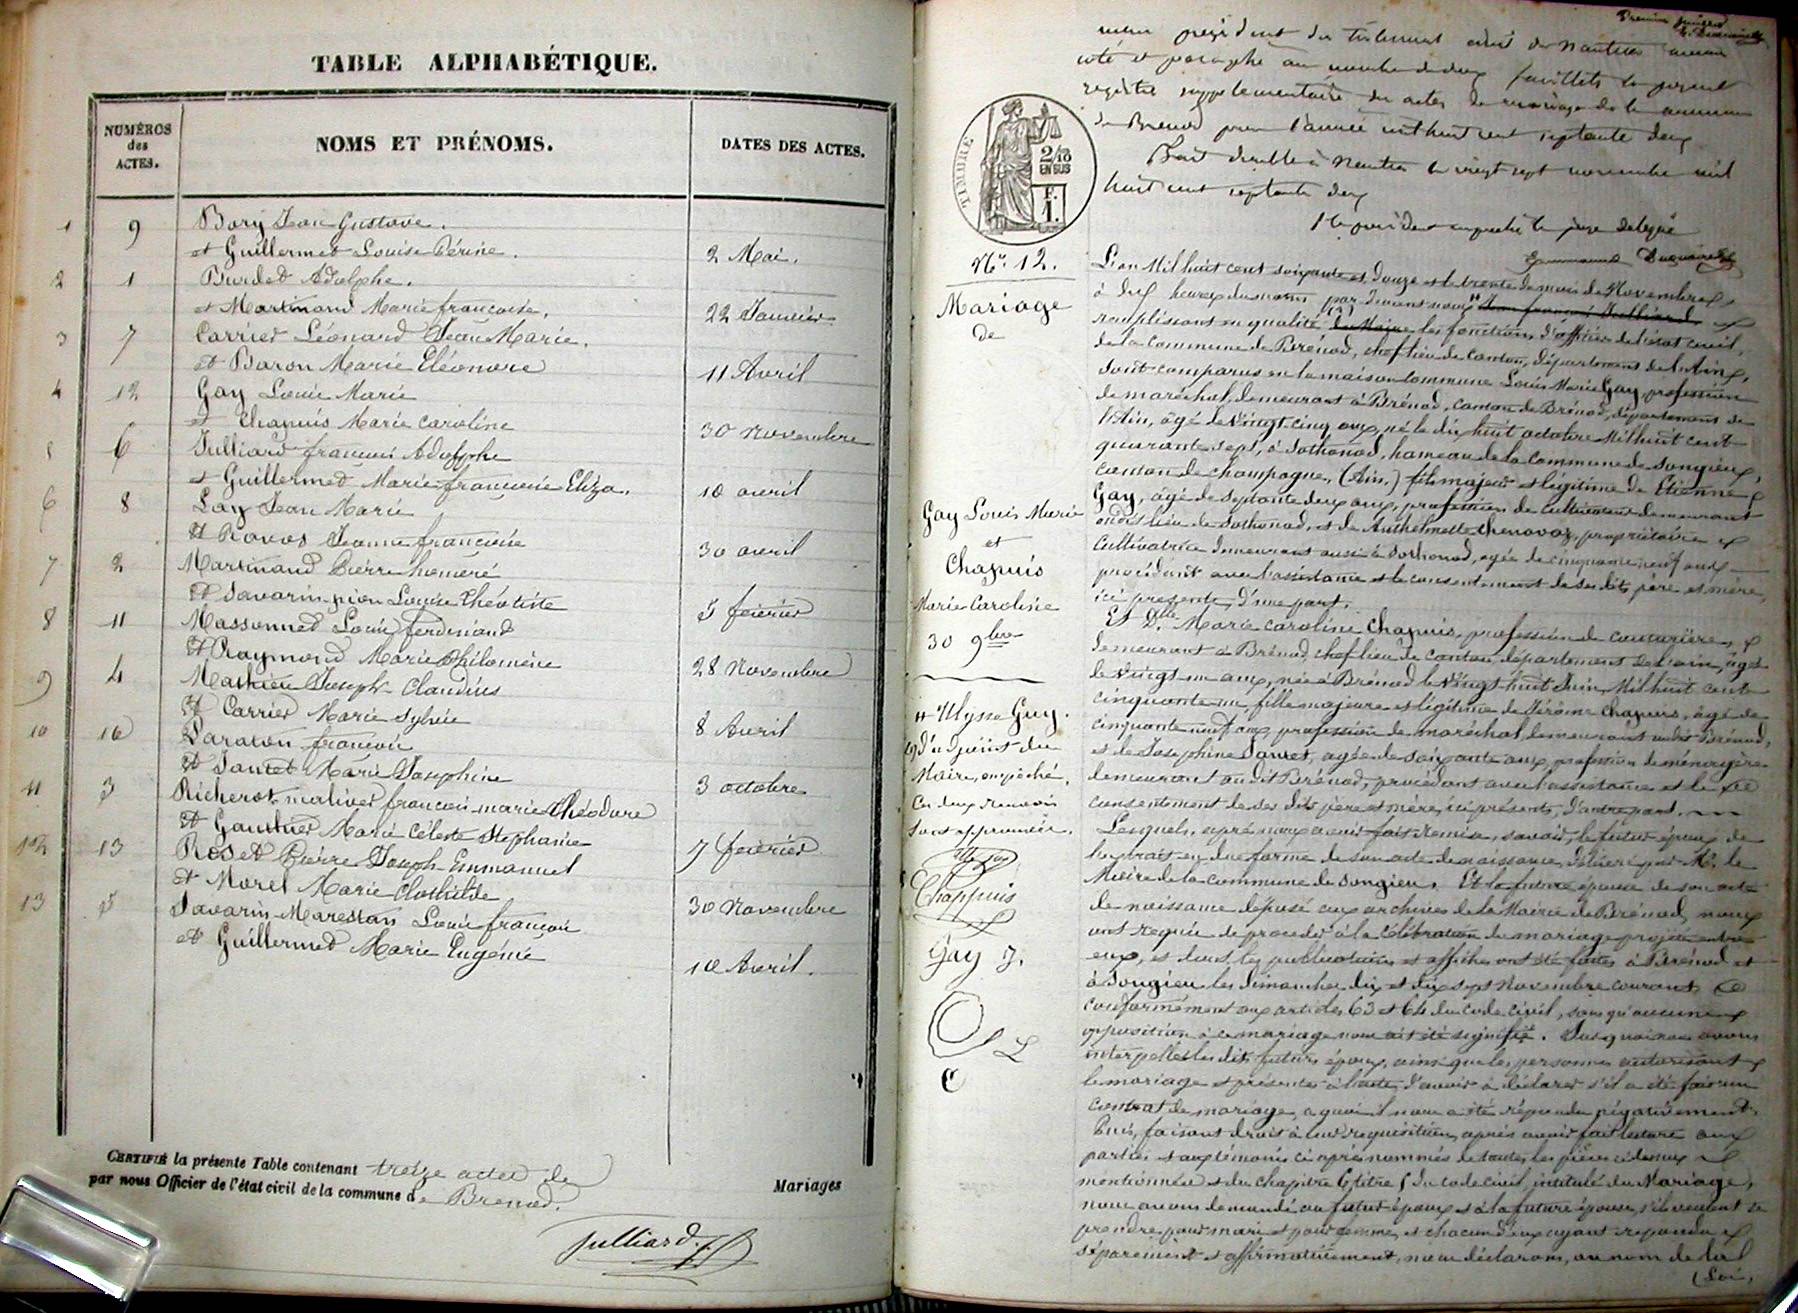 TABLE ALPHABÉTIQUE.
NUMÉROS des ACTES.
NOMS ET PRÉNOMS.
DATES DES ACTES.
1 9 Bory Jean Gustave.
et Guillermet Louise Périne. 2 Mai.
2 1 Burdet Adolphe.
et Martinand Marie françoise. 22 Janvier
3 7 Carrier Léonard Jean Marie.
et Baron Marie Eléonore 11 Avril
4 12 Gay Louis Marie
et Chapuis Marie Caroline 30 novembre
5 6 Julliard françois Adolphe
et Guillermet Marie françoise Eliza. 10 avril
6 8 Lay Jean Marie
et Ravos Jeanne françoise 30 avril
7 2 Martinand Pierre honoré
et Savarin pion Louise Théotiste 5 feivrier
8 11 Massonnet Louis ferdinand
et Raymond Marie Philomène 28 Novembre
9 4 Mathieu Joseph Claudius
et Carrier Marie Sylvie 8 Avril
10 10 Paraton françois
et Jantet Marie Josephine 3 octobre
11 3 Richerot françois marie Théodore
et Gauthier Marie Céleste Stephanie 7 feivrier
12 13 Roset Pierre Joseph Emmanuel
et Morel Marie Clothilde 30 Novembre
13 5 Savarin Marestan Louis françois
et Guillermet Marie Eugénie 10 Avril.
CERTIFIÉ la présente Table contenant treize actes de Mariages
par nous Officier de l'état civil de la commune de Brenod.
Julliard
Premier feuillet
président du tribunal civil de Nantua avons
coté et paraphé au nombre de deux feuillets le present
registre supplementaire des actes de mariage de la commune
de Brenod pour l'année mil huit cent septante deux
Fait double à Nantua le vingt sept novembre mil
huit cent septante deux
P le président empeché le juge delegué
TIMBRE
2/10
EN SUS
F.
1.
No. 12.
Mariage
de
Gay Louis Marie
et
Chapuis
Marie Caroline
30 9bre
# Ulysse Guy.
(2) d'adjoint du
Maire, empêché.
Ces deux renvois
sont approuvés.
Chappuis
Gay J.
L'an Mil huit cent soixante et douze et le trente du mois de Novembre
à dix heures du matin par devant nous # Jean françois Julliard
remplissant en qualité (2) de Maire les fonctions d'officier de l'état civil,
de la Commune de Brénod, chef lieu de canton, département de l'Ain,
sont comparus en la maison Commune Louis Marie Gay, profession
de maréchal, demeurant à Brénod, canton de Brénod, département de
l'Ain, âgé de Vingt cinq ans, né le dix huit octobre Mil huit cent
quarante sept, à Sothonod, hameau de la commune de Songieu,
canton de Champagne, (Ain,) fils majeur et légitime de Etienne
Gay, âgé de septante deux ans, profession de cultivateur demeurant
au dit lieu de Sothonod, et de Anthelmette Chenavaz, propriétaire
cultivatrice demeurant aussi à Sothonod, agée de cinquante neuf ans
procédant avec l'assistance et le consentement de ses dits père et mère,
ici présents, d'une part.
Et Dlle Marie Caroline Chapuis, profession de couturière,
demeurant à Brénod, chef lieu de canton, département de l'ain, agée
de Vingt un ans, née à Brénod le Vingt huit Juin Mil huit cent
cinquante un, fille majeure et légitime de Jérôme Chapuis, âgé de
cinquante neuf ans, profession de maréchal, demeurant audit Brénod,
et de Josephine Jantet, agée de soixante ans, profession de ménagère
demeurant audit Brénod, procédant avec l'assistance et le
consentement de ses dits père et mère, ici présents, d'autre part.
Lesquels, après nous avoir fait remise, savoir, le futur époux de
l'extrait en due forme de son acte de naissance, délivré par Mr. le
Maire de la commune de Songieu. Et la future épouse de son acte
de naissance déposé aux archives de la Mairie de Brénod, nous
ont requis de procéder à la célébration du mariage projeté entre
eux, et dont les publications et affiches ont été faites à Brénod et
à Songieu les dimanches dix et dix sept Novembre courant
conformément aux articles 63 et 64 du code civil, sans qu'aucune
opposition à ce mariage nous ait été signifié. Sur quoi nous avons
interpellé les dits futurs époux, ainsi que les personnes autorisant
le mariage et présentes à l'acte, d'avoir à déclarer s'il a été fait un
contrat de mariage, a quoi il nous a été répondu négativement.
Puis, faisant droit à leur requisition, après avoir fait lecture aux
parties et aux témoins ci après nommés de toutes les pièces ci dessus
mentionnées et du chapitre 6 titre 5 du code civil, intitulé du Mariage,
nous avons demandé au futur époux et à la future épouse, s'ils veulent se
prendre pour mari et pour femme, et chacun d'eux ayant repondu
séparément et affirmativement, nous déclarons, au nom de la
Loi,